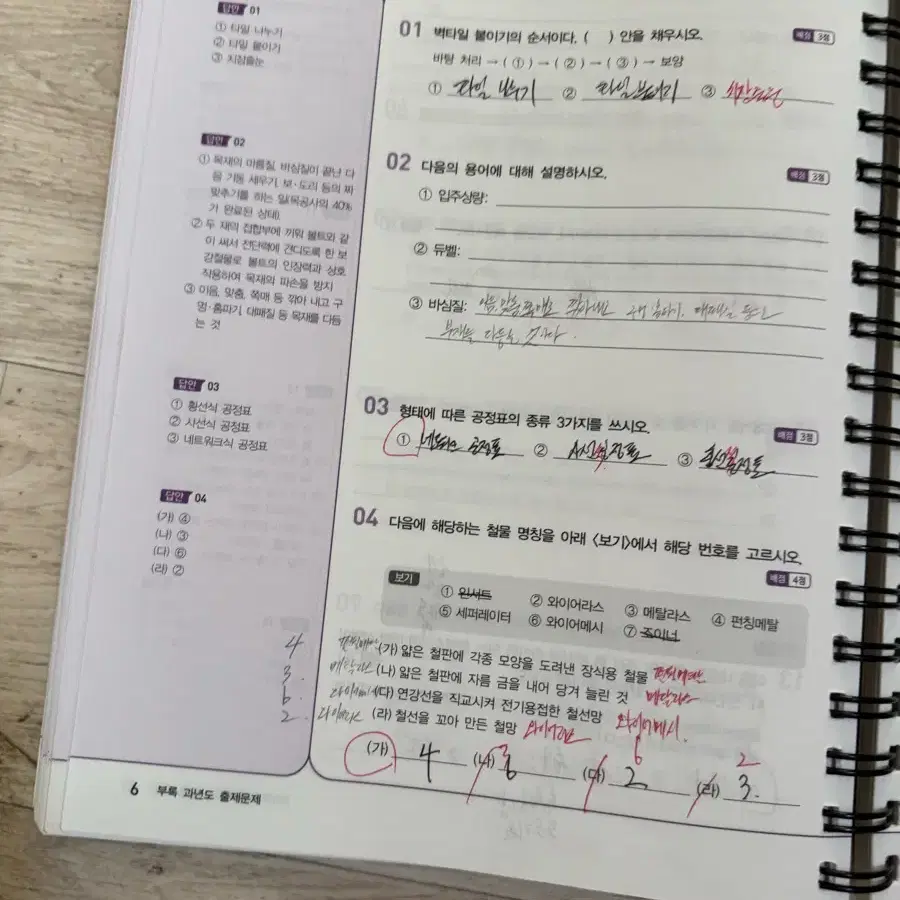 답안 01
① 타일 나누기
② 타일 붙이기
③ 치장줄눈
답안 02
① 목재의 마름질, 바심질이 끝난 다
음 기둥 세우기, 보·도리 등의 짜
맞추기를 하는 일(목공사의 40%
가 완료된 상태)
② 두 재의 접합부에 끼워 볼트와 같
이 써서 전단력에 견디도록 한 보
강철물로 볼트의 인장력과 상호
작용하여 목재의 파손을 방지
③ 이음, 맞춤, 쪽매 등 깎아 내고 구
멍·홈파기, 대패질 등 목재를 다듬
는 것
답안 03
① 횡선식 공정표
② 사선식 공정표
③ 네트워크식 공정표
답안 04
(가) ④
(나) ③
(다) ⑥
(라) ②
4
3.
6.
2.
6 부록 과년도 출제문제
01 벽타일 붙이기의 순서이다. ( ) 안을 채우시오. 배점 3점
바탕 처리 → ( ① ) → ( ② ) → ( ③ ) → 보양
① 타일 나누기 ② 타일 붙이기 ③ 치장줄눈
02 다음의 용어에 대해 설명하시오. 배점 3점
① 입주상량:
② 듀벨:
③ 바심질:
03 형태에 따른 공정표의 종류 3가지를 쓰시오. 배점 3점
① 네트워크 공정표 ② 사선식공정표 ③ 횡선식공정표
04 다음에 해당하는 철물 명칭을 아래 〈보기〉에서 해당 번호를 고르시오. 배점 4점
보기
① 인서트 ② 와이어라스 ③ 메탈라스 ④ 펀칭메탈
⑤ 세퍼레이터 ⑥ 와이어메시 ⑦ 조이너
펀칭메탈 (가) 얇은 철판에 각종 모양을 도려낸 장식용 철물 펀칭메탈
메탈라스 (나) 얇은 철판에 자름 금을 내어 당겨 늘린 것 메탈라스
(다) 연강선을 직교시켜 전기용접한 철선망 와이어메시.
와이어라스 (라) 철선을 꼬아 만든 철망 와이어라스
6 2
(가) 4 (나) (다) 2 (라) 3.